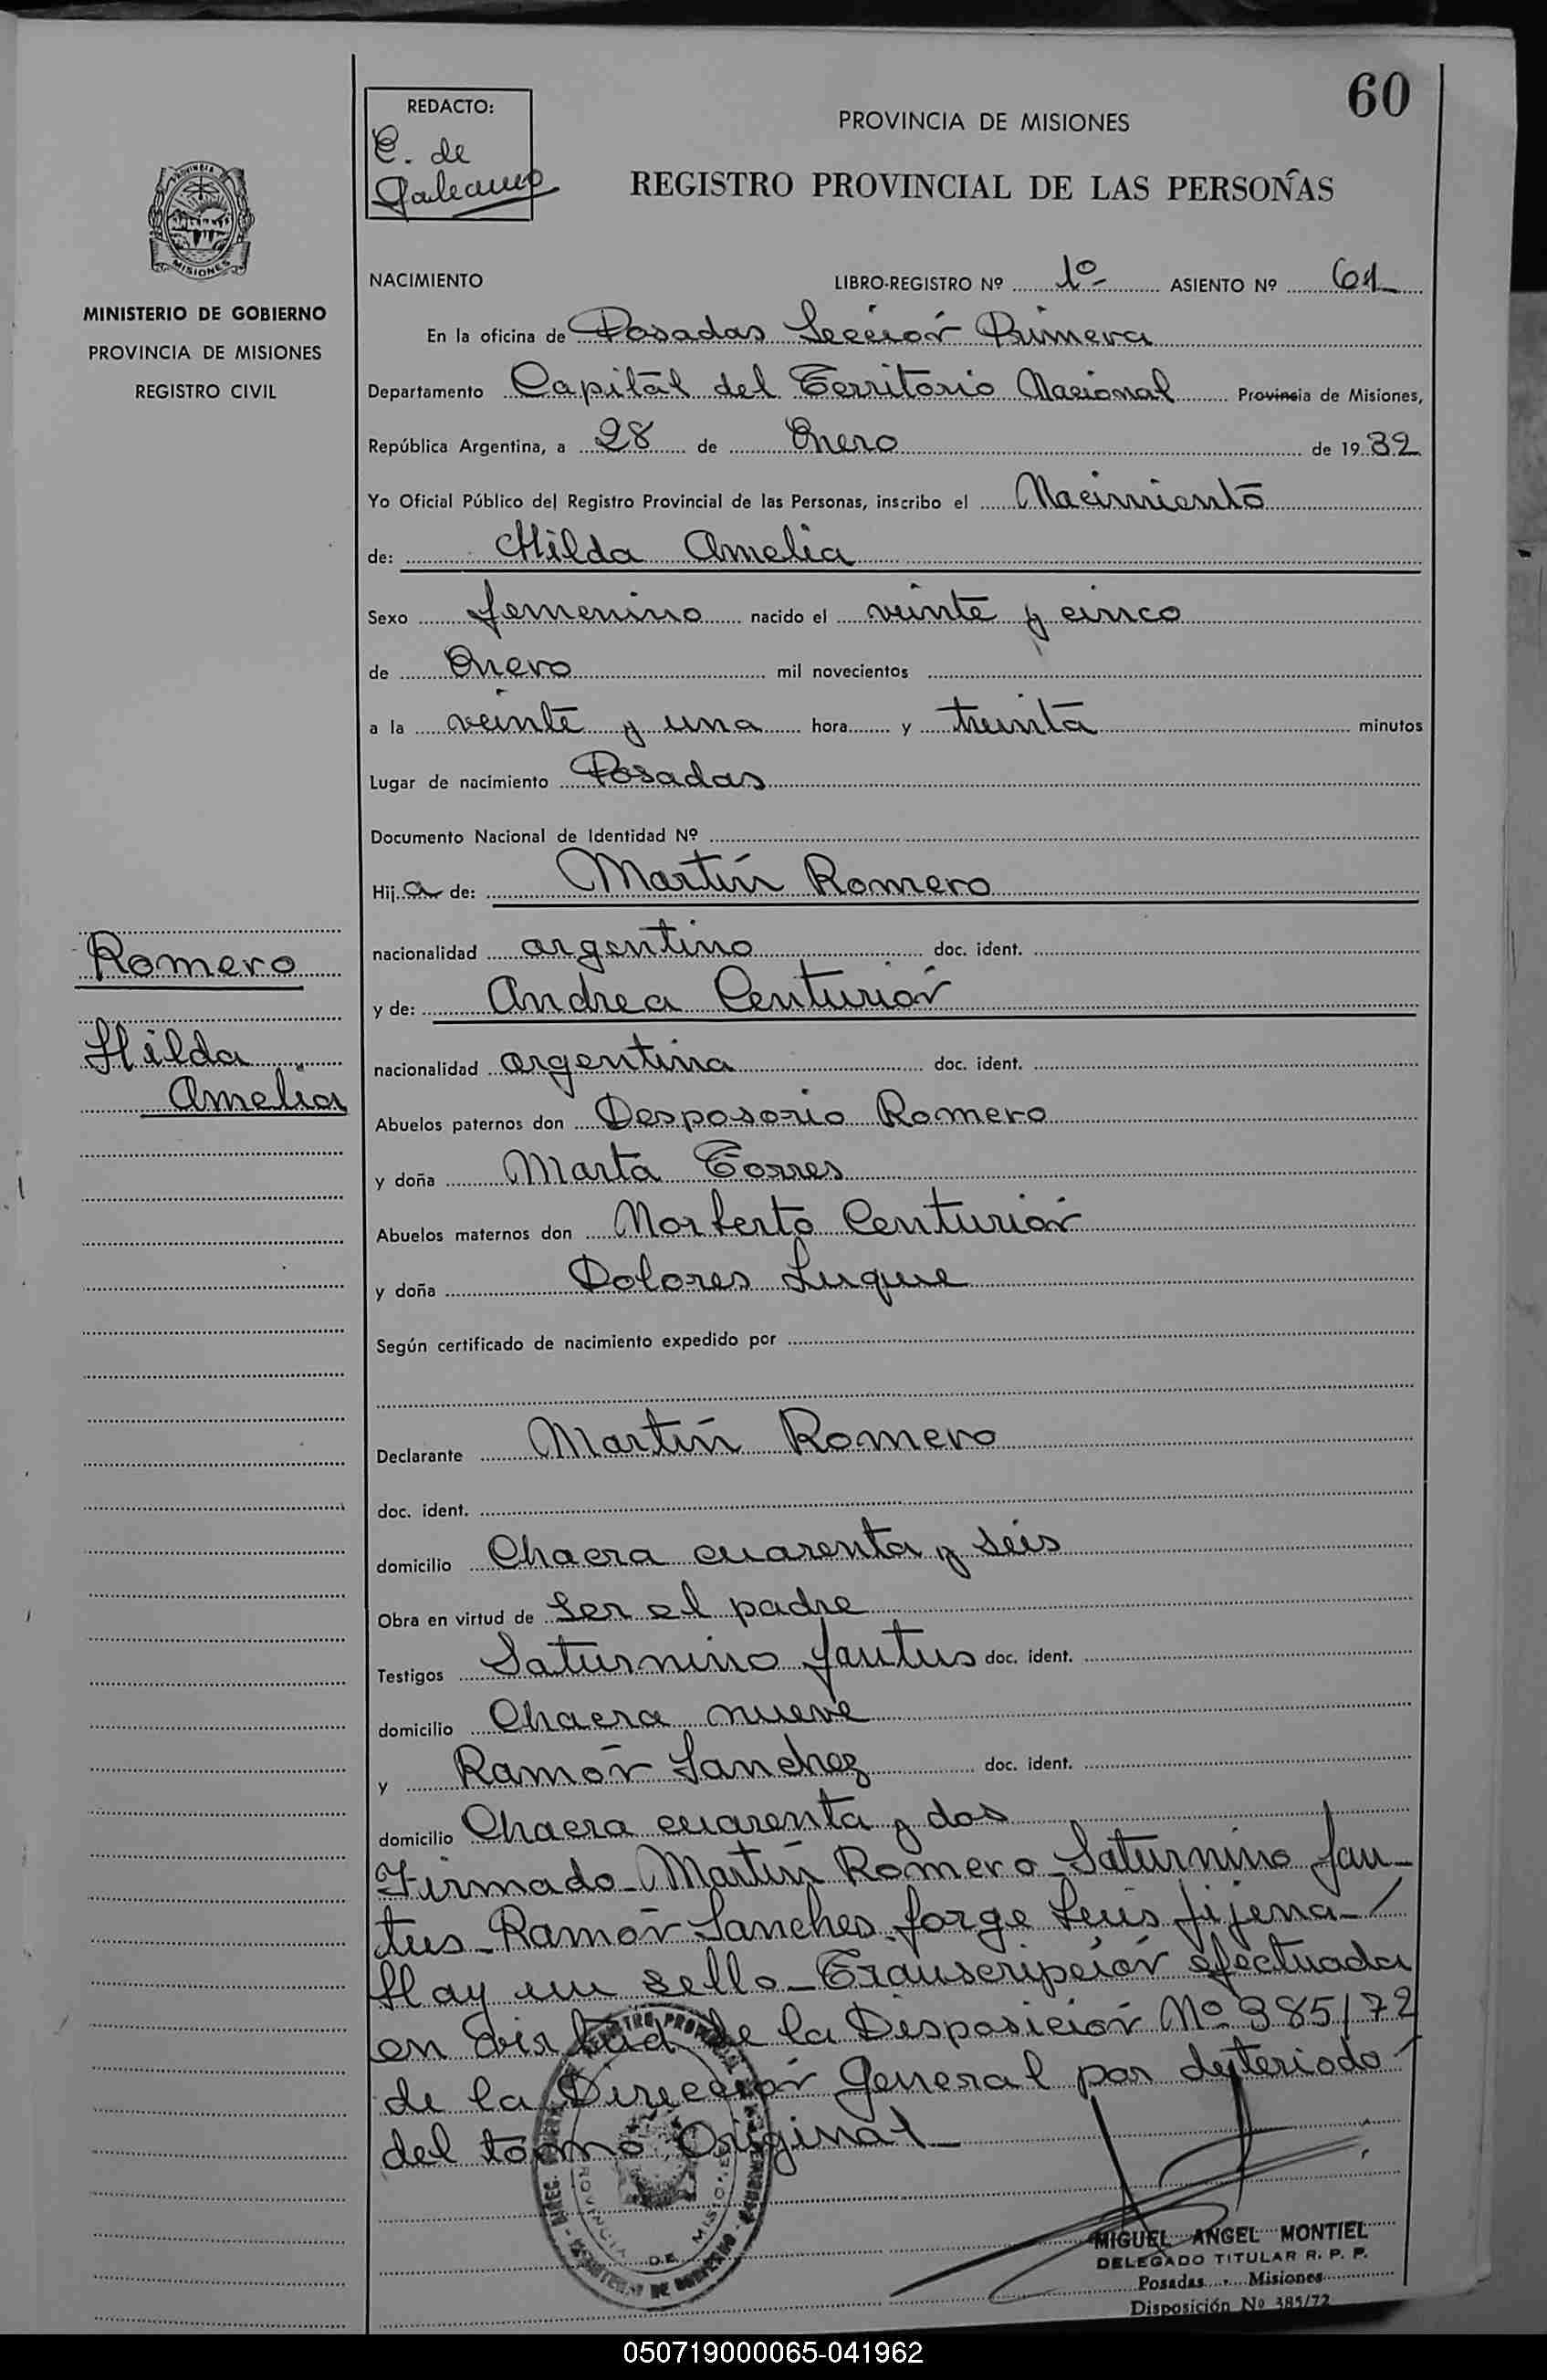 60
REDACTO:
C. de
Galeano
PROVINCIA DE MISIONES
REGISTRO PROVINCIAL DE LAS PERSONAS
PROVINCIA
MISIONES
MINISTERIO DE GOBIERNO
PROVINCIA DE MISIONES
REGISTRO CIVIL
NACIMIENTO LIBRO-REGISTRO Nº 1º- ASIENTO Nº 61
En la oficina de Posadas Sección Primera
Departamento Capital del Territorio Nacional Provincia de Misiones,
República Argentina, a 28 de Enero de 1932
Yo Oficial Público del Registro Provincial de las Personas, inscribo el Nacimiento
de: Hilda Amelia
Sexo femenino nacido el veinte y cinco
de Enero mil novecientos
a la veinte y una hora y treinta minutos
Lugar de nacimiento Posadas
Documento Nacional de Identidad Nº
Hija de: Martín Romero
Romero
nacionalidad argentino doc. ident.
y de: Andrea Centurión
Hilda
Amelia
nacionalidad argentina doc. ident.
Abuelos paternos don Desposorio Romero
y doña Marta Torres
Abuelos maternos don Norberto Centurión
y doña Dolores Luque
Según certificado de nacimiento expedido por
Declarante Martín Romero
doc. ident.
domicilio Chacra cuarenta y seis
Obra en virtud de ser el padre
Testigos Saturnino Jautus doc. ident.
domicilio Chacra nueve
y Ramón Sanchez doc. ident.
domicilio Chacra cuarenta y dos
Firmado-Martín Romero-Saturnino Jau-
tus-Ramón Sanches Jorge Luis Jijena-/
Hay un sello-Transcripción efectuada
en virtud de la Disposición Nº 385/72
de la Dirección General por deteriodo
del tomo Original-
PROVINCIA DE MISIONES
MIGUEL ANGEL MONTIEL
DELEGADO TITULAR R. P. P.
Posadas - Misiones
Disposición Nº 385/72
050719000065-041962